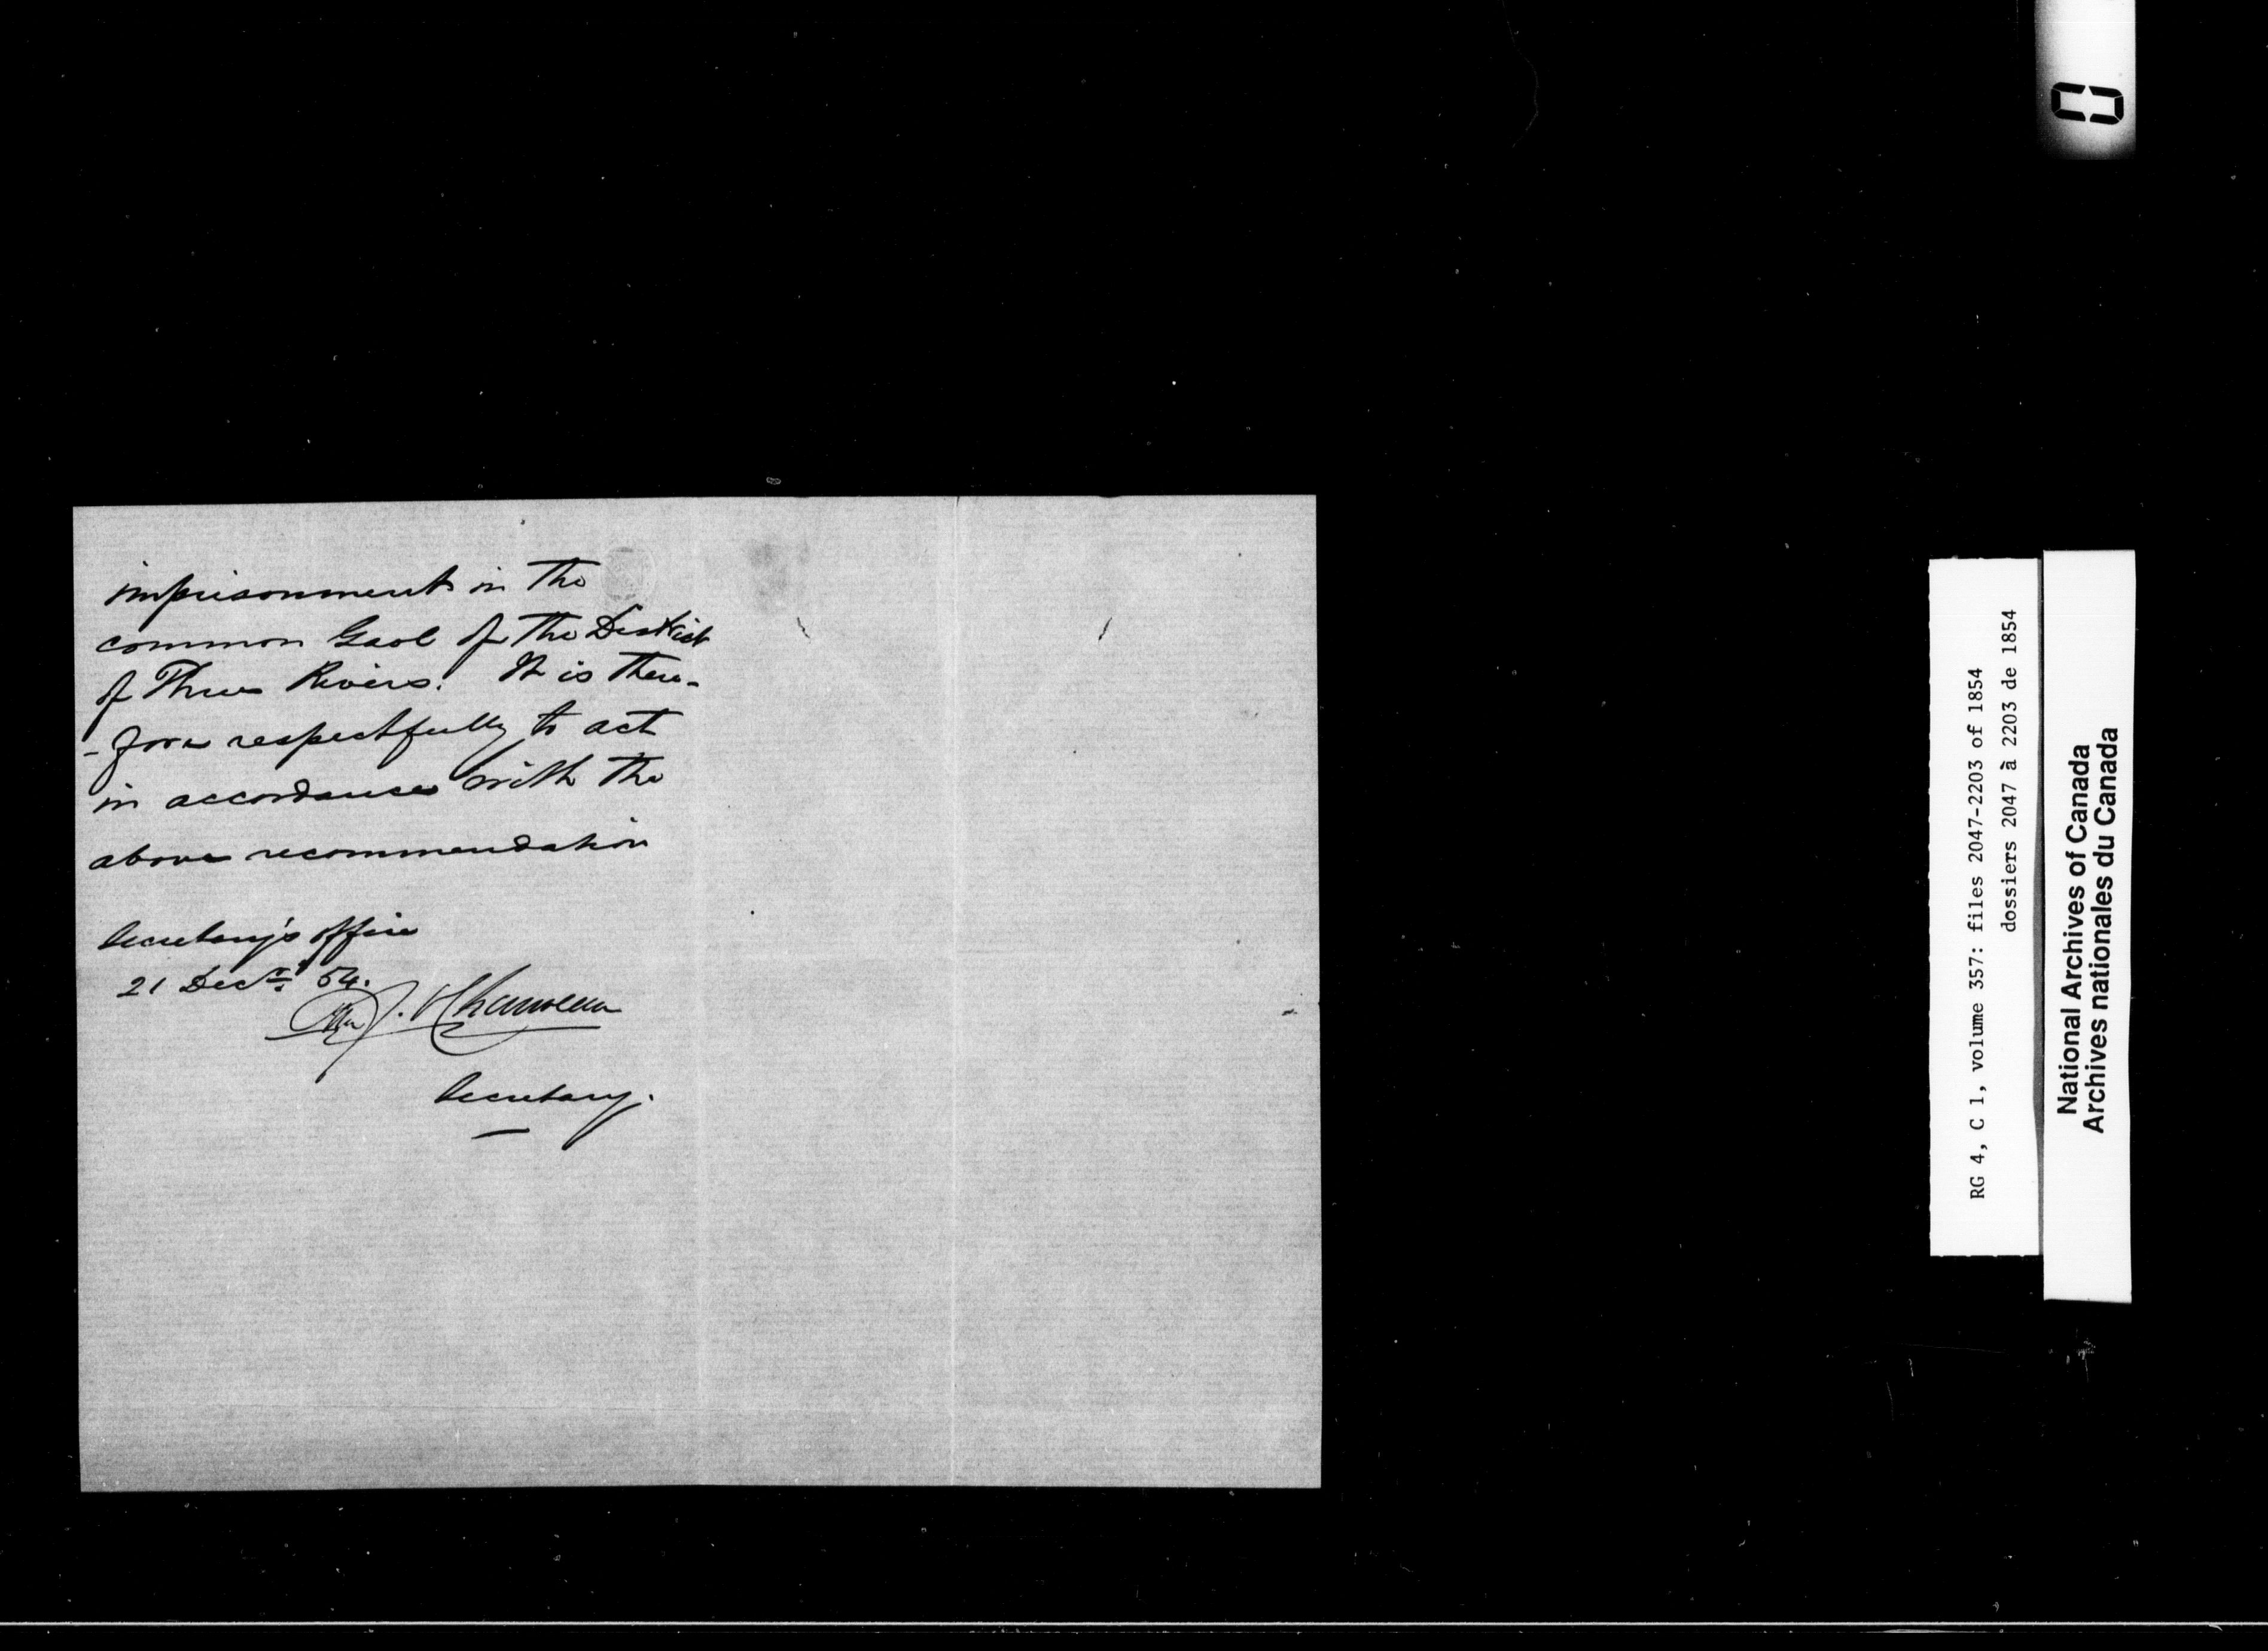 imprisonment in the
common Gaol of the District
of Three Rivers. It is there-
-fore respectfully to act
in accordance with the
above recommendation
Secretary's Office
21 Decr. 54.
J. Chauveau
Secretary.
RG 4, C 1, volume 357: files 2047-2203 of 1854
dossiers 2047 à 2203 de 1854
National Archives of Canada
Archives nationales du Canada
0